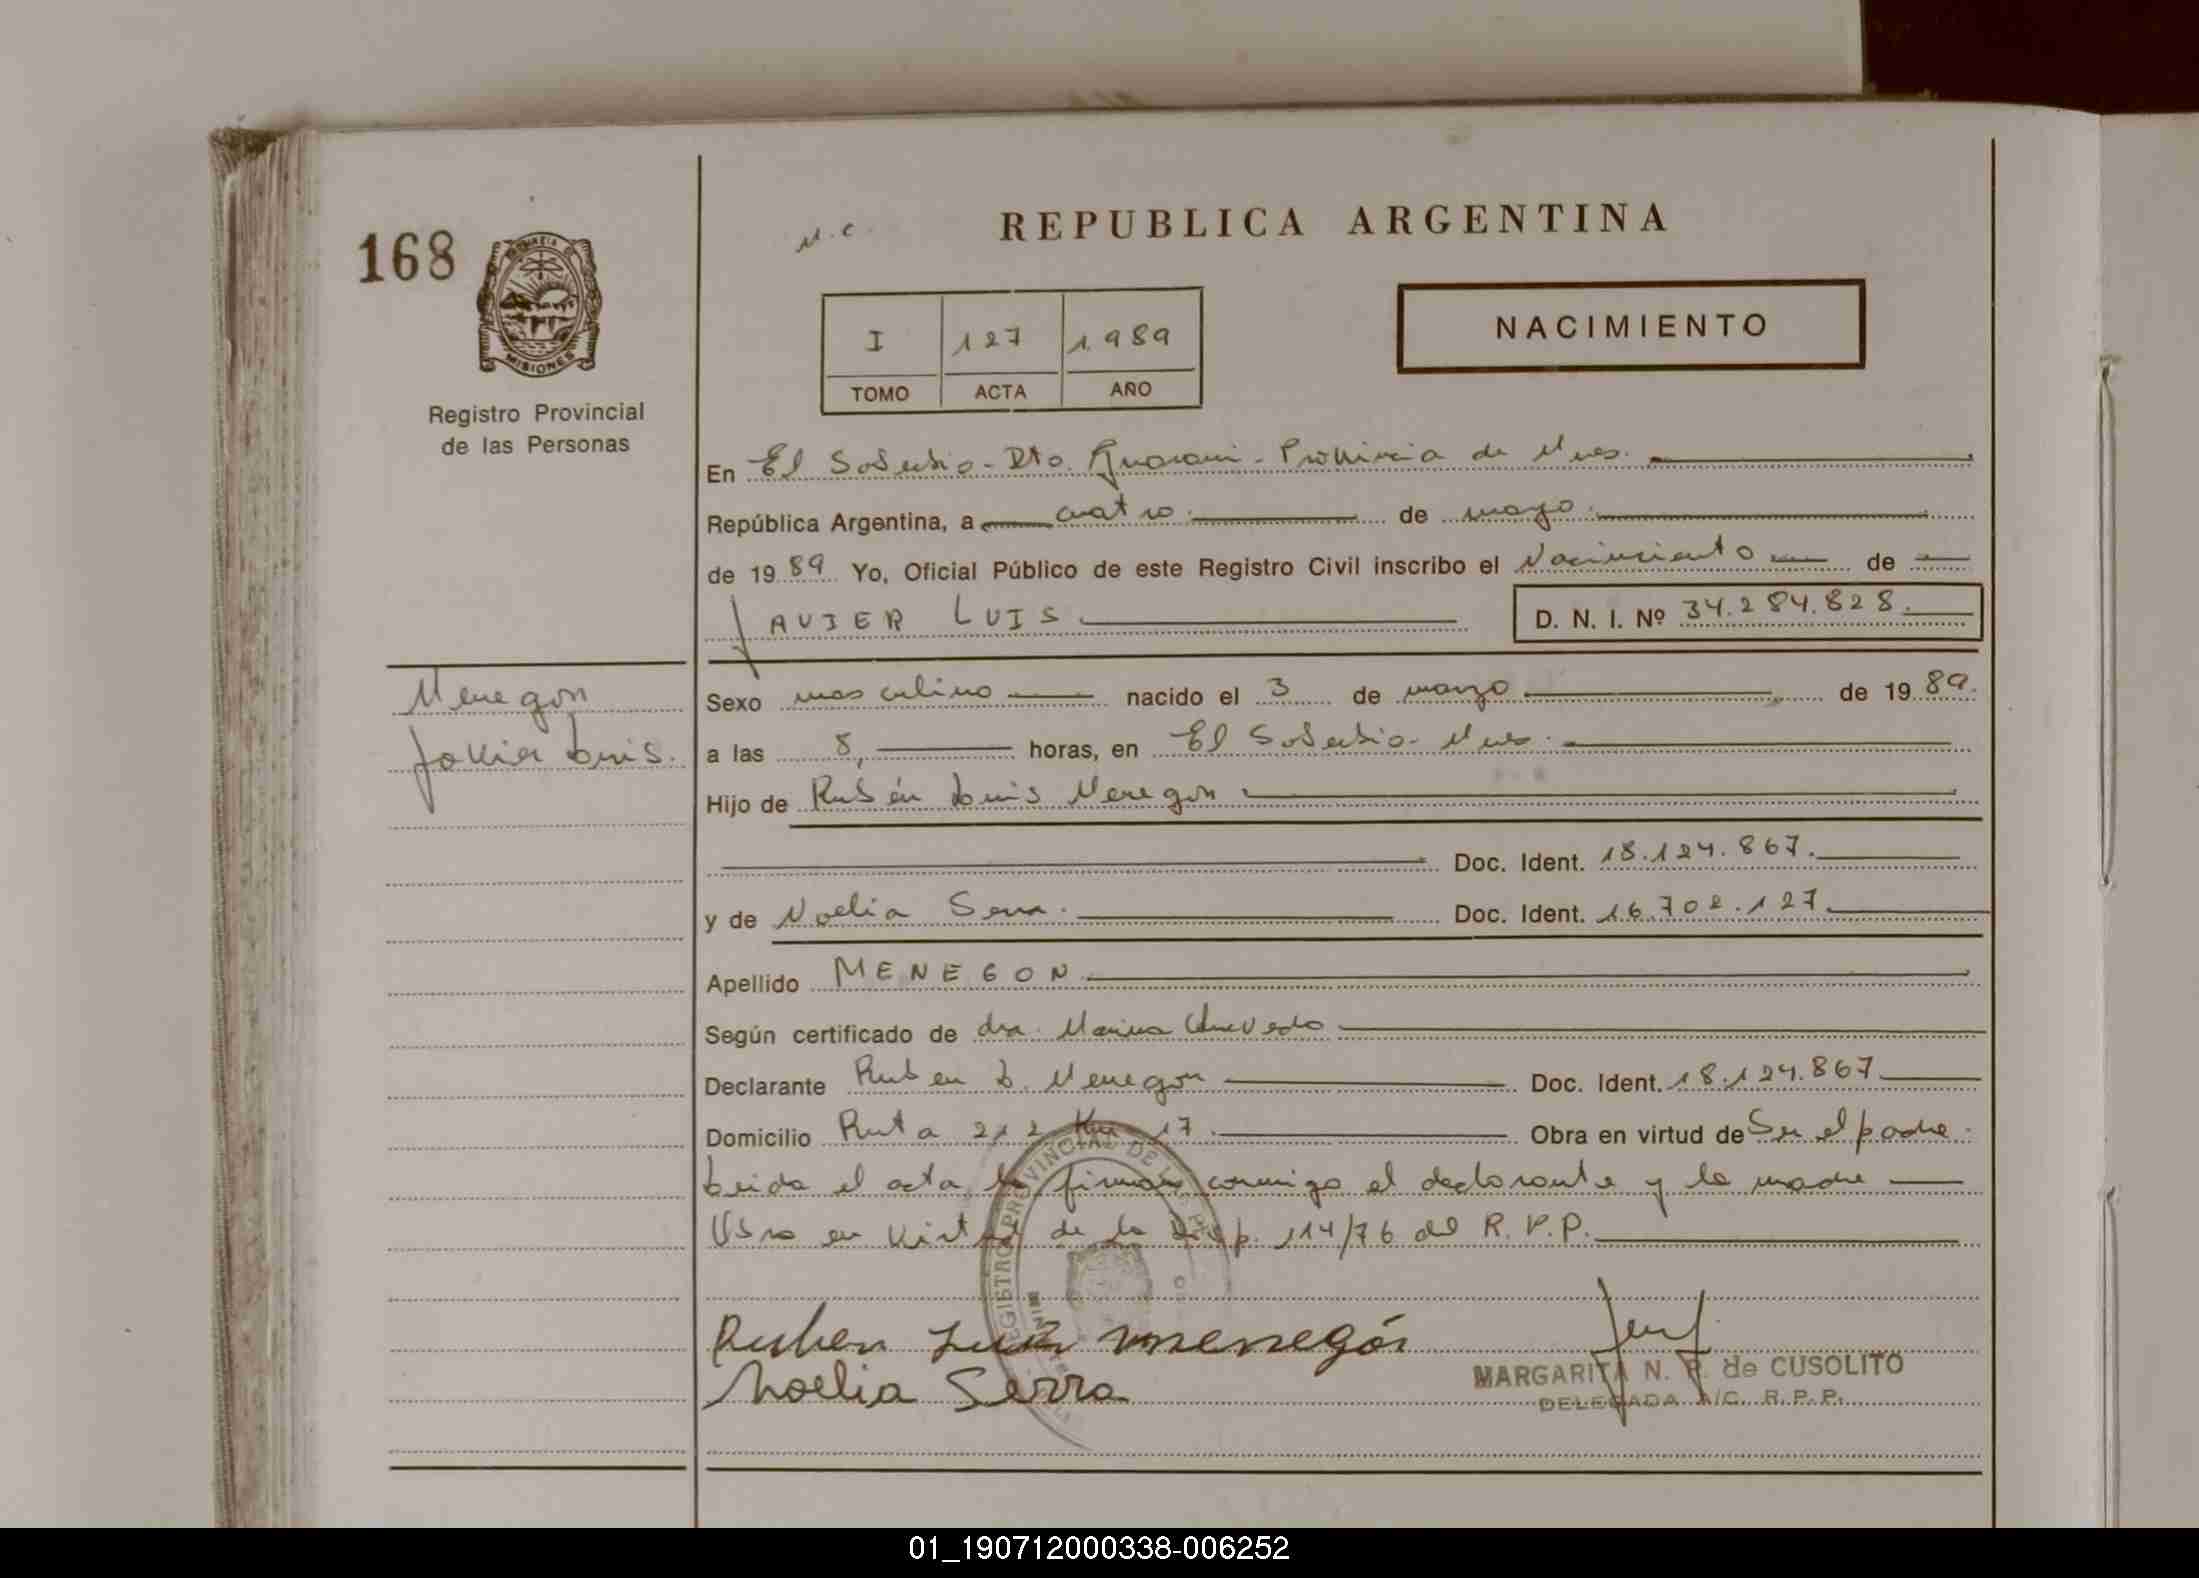 168
MISIONES
Registro Provincial
de las Personas
REPUBLICA ARGENTINA
NACIMIENTO
I 127 1.989
TOMO ACTA AÑO
En El Soberbio - Dto. Guarani - Provincia de Mnes.
República Argentina, a cuatro. de mayo.
de 19 89 Yo, Oficial Público de este Registro Civil inscribo el Nacimiento de
JAVIER LUIS D. N. I. Nº 34.284.828.
Menegon
Javier Luis.
Sexo masculino nacido el 3 de marzo de 19 89.
a las 8, horas, en El Soberbio - Mnes.
Hijo de Rubén Luis Menegon
Doc. Ident. 18.124.867.
y de Noelia Serra. Doc. Ident. 16.702.127.
Apellido MENEGON
Según certificado de dra. Marina
Declarante Ruben L. Menegon Doc. Ident. 18.124.867
Domicilio Ruta 212 Km 17. Obra en virtud de Ser el padre.
Leida el acta la firman conmigo el declarante y la madre
Obra en virtud de la Disp. 114/76 del R.P.P.
REGISTRO PROVINCIAL DE LAS
Ruben Luis menegón
Noelia Serra
MARGARITA N. P. de CUSOLITO
DELEGADA A/C. R.P.P.
01_190712000338-006252